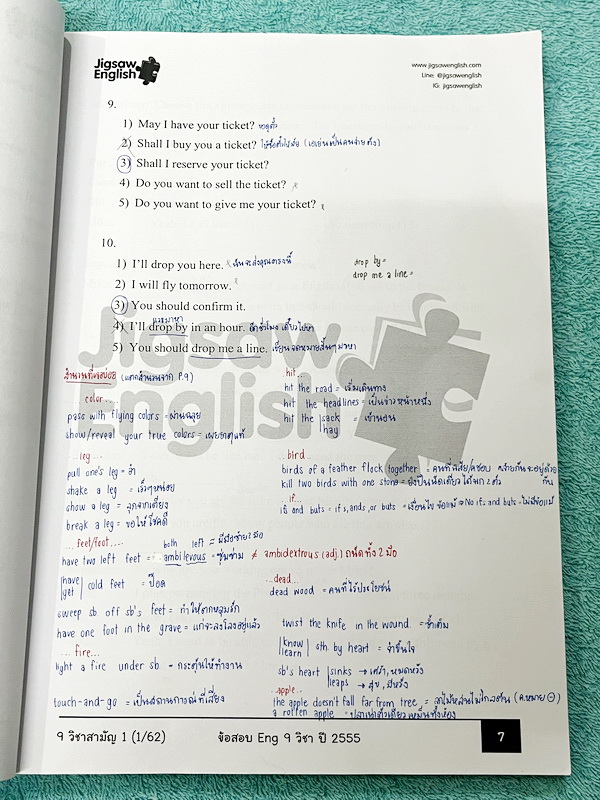 Jigsaw
English
www.jigsawenglish.com
Line: @jigsawenglish
IG: jigsawenglish
9.
1) May I have your ticket? ขอดูตั๋ว
2) Shall I buy you a ticket?
3) Shall I reserve your ticket?
4) Do you want to sell the ticket? x
5) Do you want to give me your ticket?
10.
1) I'll drop you here. x ฉันจะส่งคุณตรงนี้
drop by =
drop me a line =
2) I will fly tomorrow.
3) You should confirm it.
แวะมาหา
4) I'll drop by in an hour. อีกชั่วโมง เดี๋ยวไปหา
5) You should drop me a line. เขียนจดหมายสั้นๆ มาหา
Jigsaw
English
สำนวนที่เจอบ่อย (แตกสำนวนจาก P.9)
color...
pass with flying colors = ผ่านฉลุย
show/reveal your true colors = เผยธาตุแท้
...hit...
hit the road = เริ่มเดินทาง
hit the headlines = เป็นข่าวหน้าหนึ่ง
hit the sack = เข้านอน
hay
...leg...
pull one's leg = อำ
shake a leg = เร็วๆหน่อย
show a leg = ลุกจากเตียง
break a leg = ขอให้โชคดี
...bird...
birds of a feather flock together = คนที่
kill two birds with one stone = ยิงปืนนัดเดียวได้นก 2 ตัว
...if...
if and buts = ifs, ands, or buts = เงื่อนไข ข้อแม้ No ifs and buts = ไม่มีข้อแม้
... feet/foot....
both left = มีมือซ้าย 2 มือ
have two left feet = ambilevous = ซุ่มซ่าม ≠ ambidextrous (adj.) ถนัดทั้ง 2 มือ
have
get cold feet = ป๊อด
...dead...
dead wood = คนที่ไร้ประโยชน์
sweep sb off sb's feet = ทำให้ตกหลุมรัก
have one foot in the grave = แก่จะลงโลงอยู่แล้ว
twist the knife in the wound = ซ้ำเติม
know
learn sth by heart = จำขึ้นใจ
... fire...
light a fire under sb = กระตุ้นให้ทำงาน
sb's heart sinks → เศร้า, หมดหวัง
leaps → สุข, มีหวัง
...apple...
touch-and-go = เป็นสถานการณ์ที่เสี่ยง
the apple doesn't fall far from tree = ลูกไม้หล่นไม่ไกลต้น (ค.หมาย ⊖)
a rotten apple = ปลาเน่าตัวเดียวเหม็นทั้งข้อง
9 วิชาสามัญ 1 (1/62)
ข้อสอบ Eng 9 วิชา ปี 2555
7